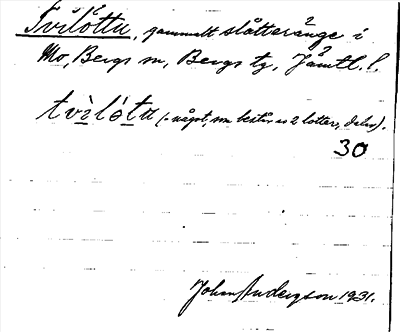 Tvilòttu, gammalt slåtteränge i
Mo, Bergs sn, Bergs tg, Jämtl. l.
tvìlótu (= något, som består av 2 lotter, delar).
30
Johan Andersson 1931.